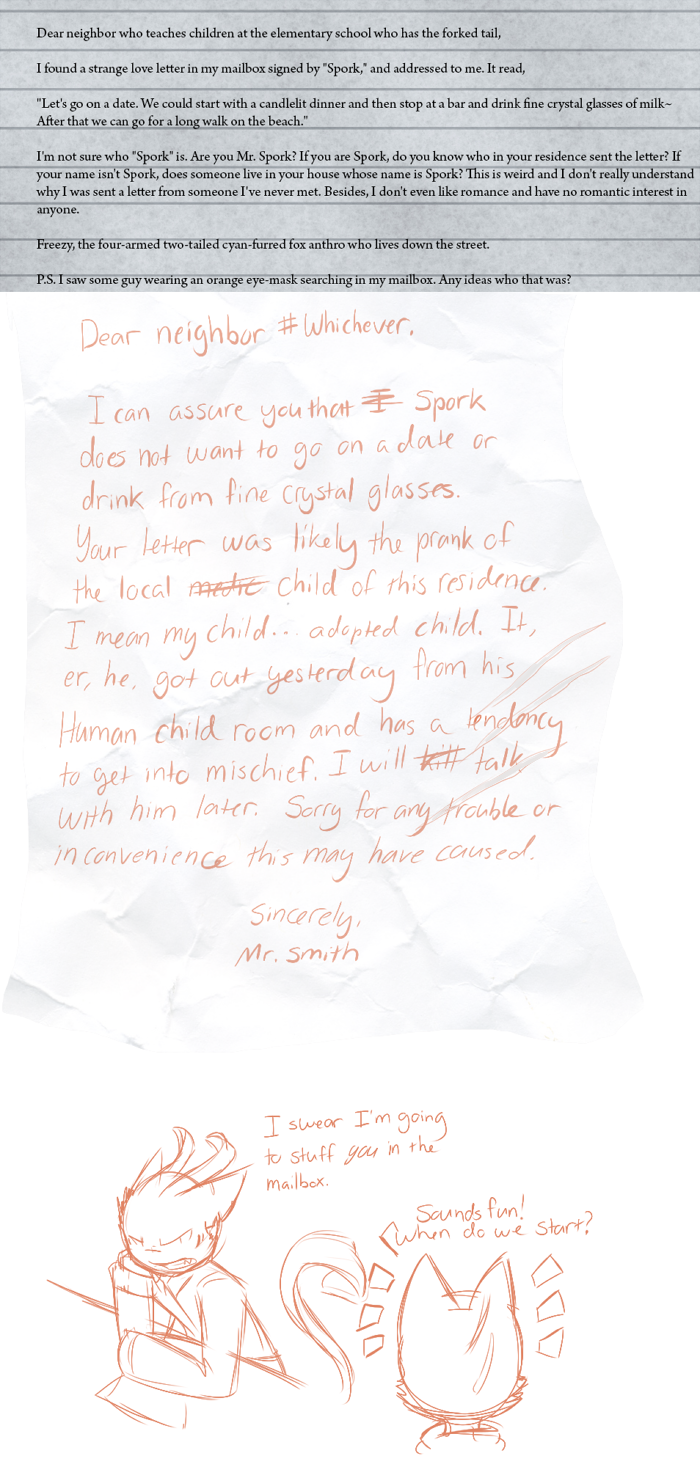 Dear neighbor who teaches children at the elementary school who has the forked tail,
I found a strange love letter in my mailbox signed by "Spork," and addressed to me. It read,
"Let's go on a date. We could start with a candlelit dinner and then stop at a bar and drink fine crystal glasses of milk~
After that we can go for a long walk on the beach."
I'm not sure who "Spork" is. Are you Mr. Spork? If you are Spork, do you know who in your residence sent the letter? If
your name isn't Spork, does someone live in your house whose name is Spork? This is weird and I don't really understand
why I was sent a letter from someone I've never met. Besides, I don't even like romance and have no romantic interest in
anyone.
Freezy, the four-armed two-tailed cyan-furred fox anthro who lives down the street.
P.S. I saw some guy wearing an orange eye-mask searching in my mailbox. Any ideas who that was?
Dear neighbor #Whichever,
I can assure you that I Spork
does not want to go on a date or
drink from fine crystal glasses.
Your letter was likely the prank of
the local medic child of this residence.
I mean my child... adopted child. It,
er, he, got out yesterday from his
Human child room and has a tendancy
to get into mischief. I will kill talk
with him later. Sorry for any trouble or
inconvenience this may have caused.
Sincerely,
Mr. Smith
I swear I'm going
to stuff you in the
mailbox.
Sounds fun!
When do we start?